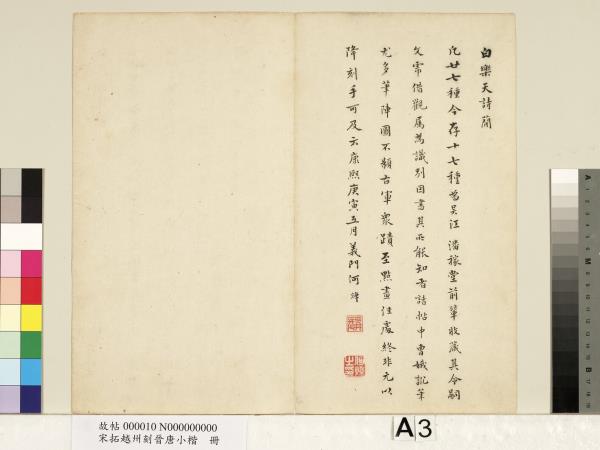 白樂天詩簡
凡廿七種今存十七種舊吳江潘稼堂前輩收藏其令嗣
文常借觀屬為識別因書其所能知者諸帖中曹娥
尤多筆陣圖不類右軍眾蹟至點畫住處終非元以
降刻手可及云康熙庚寅五月義門何焯
故帖 000010 N000000000
宋拓越州刻晉唐小楷 冊
A3
A
M
B